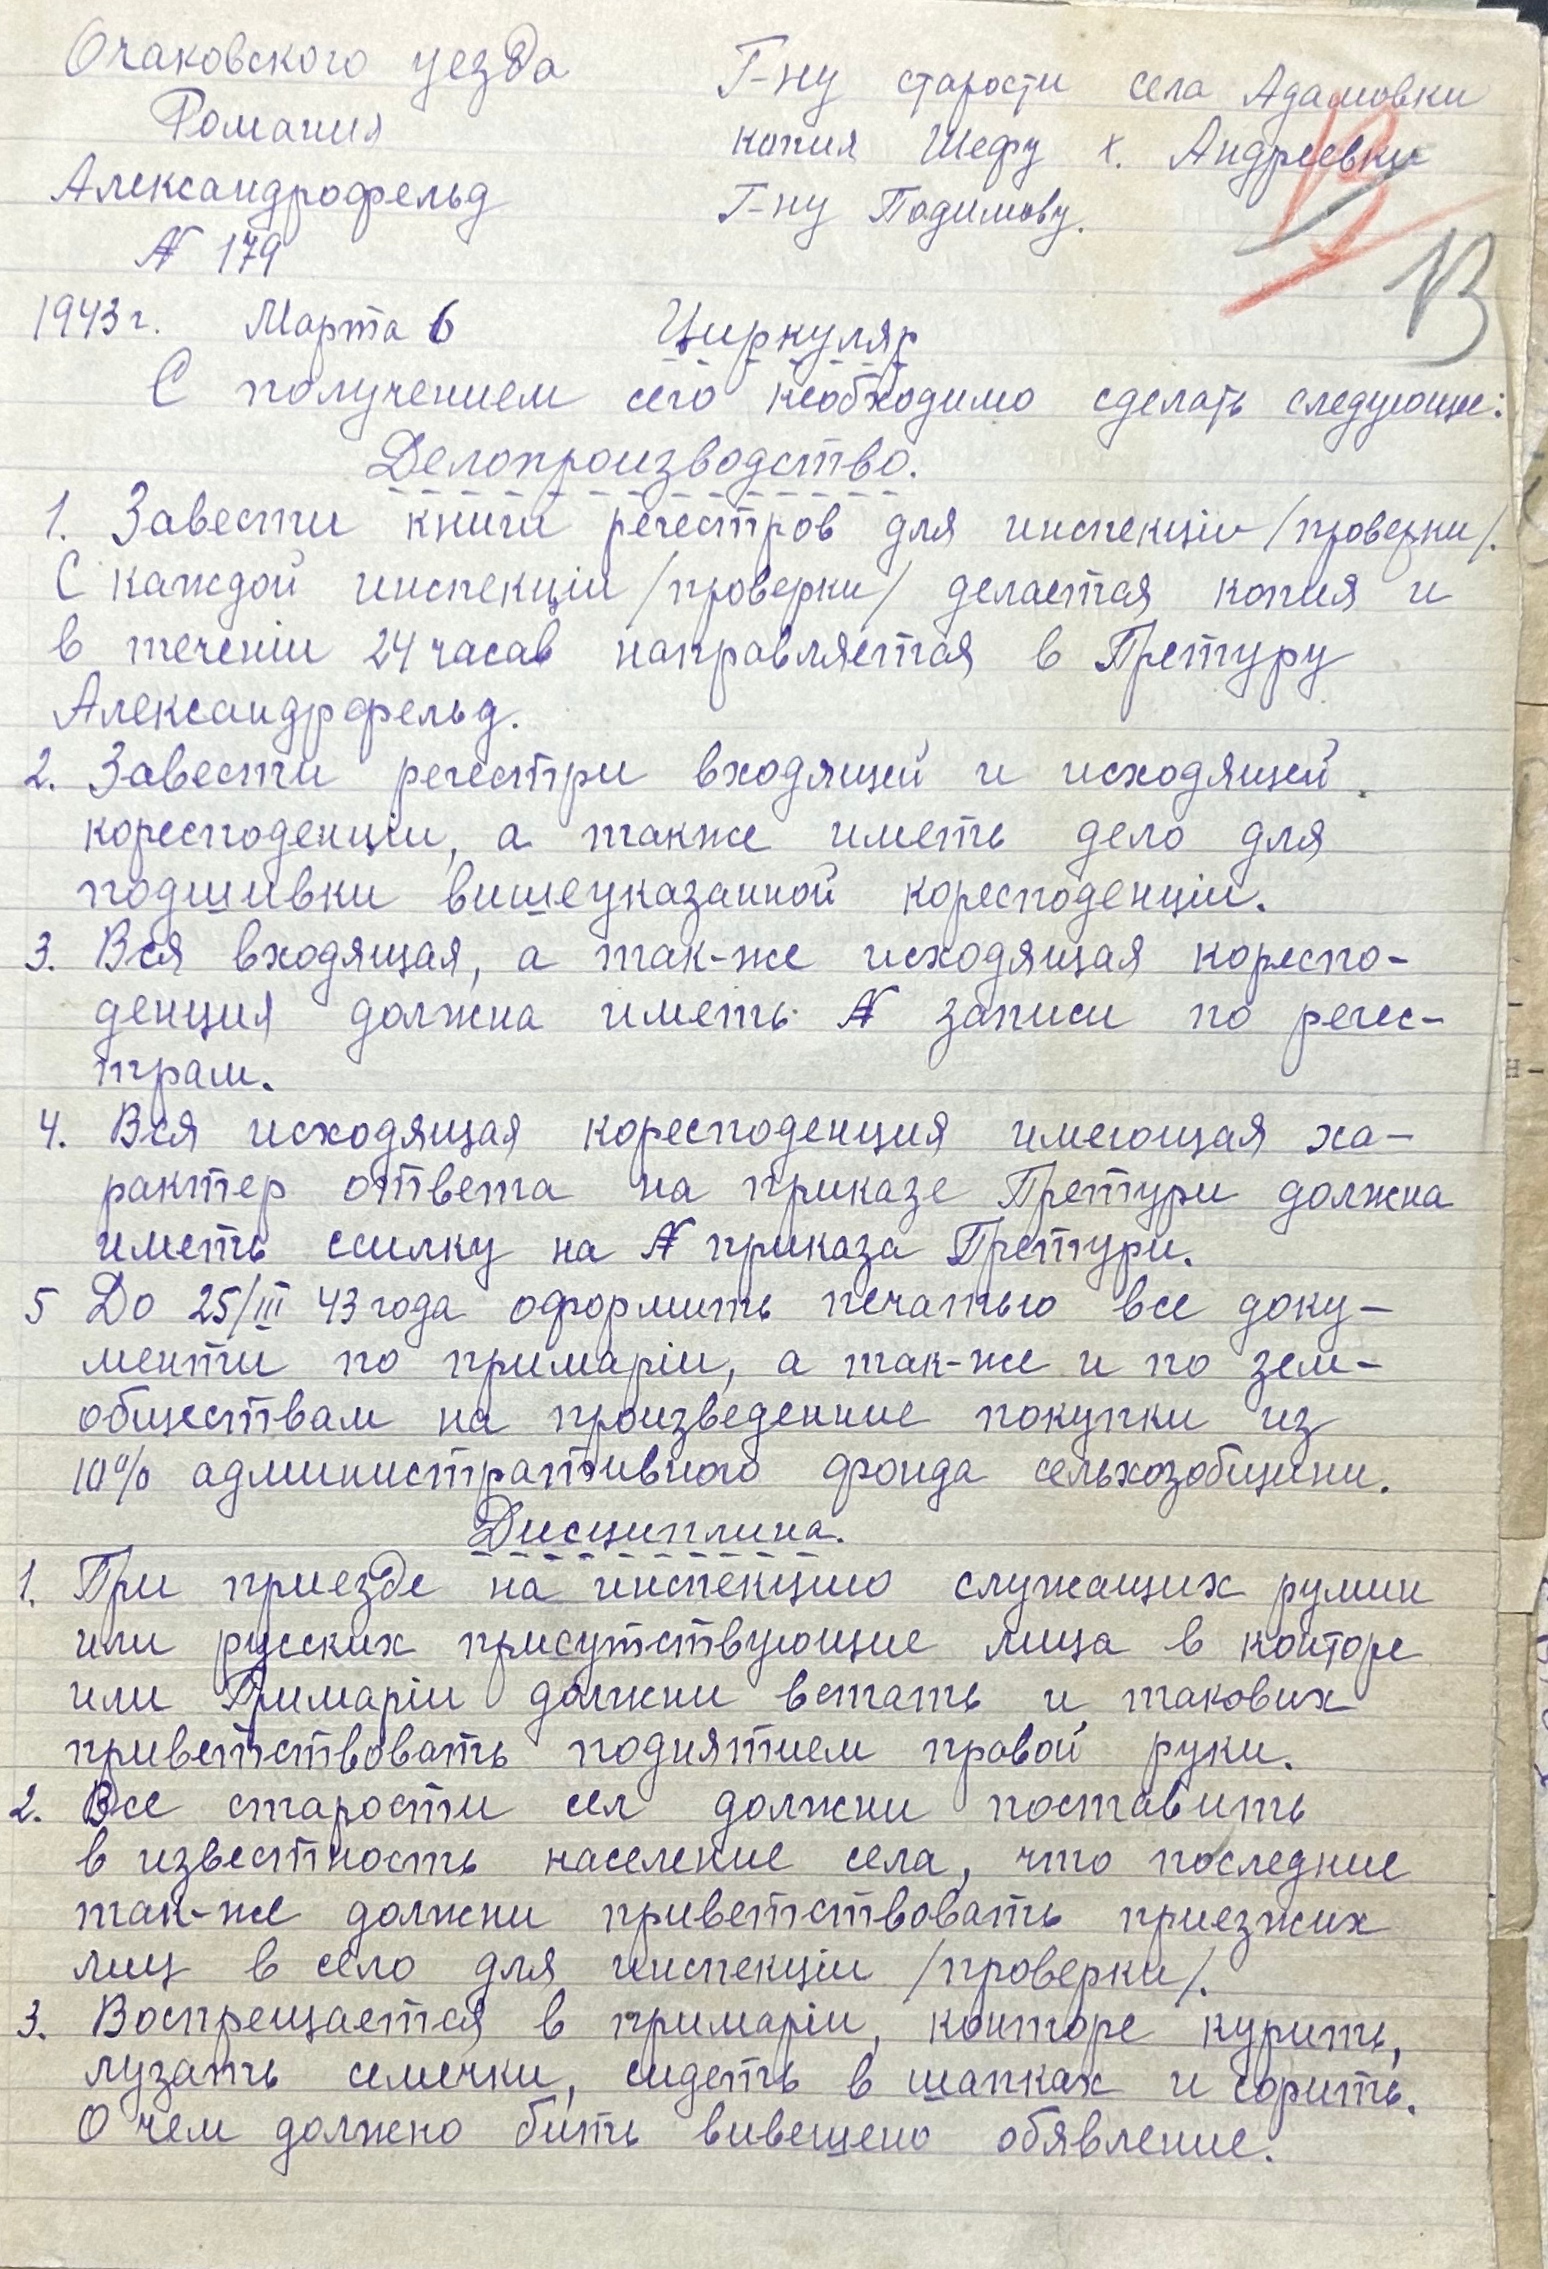 Очаковского уезда
Романия
Александрофельд
№ 179
1943 г. Марта 6
Г-ну старости села Адамовки
копия Шефу х. Андреевки
Г-ну Подимову.
13
Циркуляр
С получением сего необходимо сделать следующе:
Делопроизводство.
1. Завести книги регестров для инспекціи /проверки/.
С каждой инспекціи /проверки/ делается копия и
в теченіи 24 часав направляется в Претуру
Александрофельд.
2. Завести регестри входящей и исходящей
коресподенціи, а также иметь дело для
подшивки вишеуказанной коресподенціи.
3. Вся входящая, а так-же исходящая кореспо-
денция должна иметь № записи по регес-
трам.
4. Вся исходящая коресподенция имеющая ха-
рактер ответа на приказе Претури должна
иметь ссилку на № приказа Претури.
5 До 25/III 43 года оформить печатью все доку-
менти по примаріи, а так-же и по зем-
обществам на произведенние покупки из
10% административного фонда сельхозобщини.
Дисциплина.
1. При приезде на инспекцию служащих румин
или русских присутствующие лица в конторе
или Примаріи должни встать и такових
приветствовать поднятием правой руки.
2. Все старости сел должни поставить
в известность население села, что последние
так-же должни приветствовать приезжих
лиц в село для инспекціи /проверки/.
3. Воспрещается в примаріи, конторе курить,
лузать семечки, сидеть в шапках и сорить.
О чем должно бить вивешено обявление.